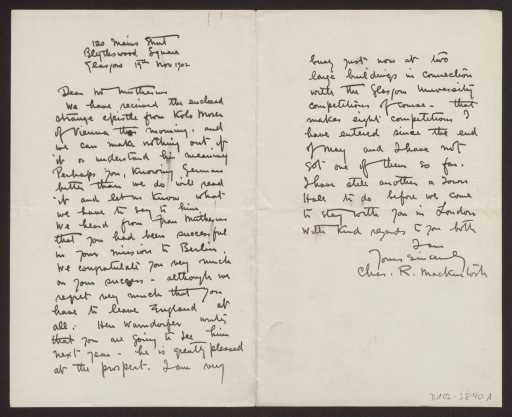 120 Mains Street
Blythswood Square
Glasgow 19th Nov 1902
Dear Mr Muthesius
We have received the enclosed
strange epistle from Kolo Moser
of Vienna this morning. and
we can make nothing out of
it or understand his meaning
Perhaps you, knowing German
better than we do will read
it and let us know what
we have to say to him
We heard from Frau Muthesius
that you had been successful
in your mission to Berlin.
We congratulate you very much
on your success - although we
regret very much that you
have to leave England at
all. Herr Warndorfer writes
that you are going to see him
next year - he is greatly pleased
at the prospect. I am very
busy just now at two
large buildings in connection
with the Glasgow University
competitions of course - that
makes eight competitions I
have entered since the end
of May and I have not
got one of them so far.
I have still another a Town
Hall to do before we come
to stay with you in London
With kind regards to you both
I am
Yours Sincerely
Chas. R. Mackintosh